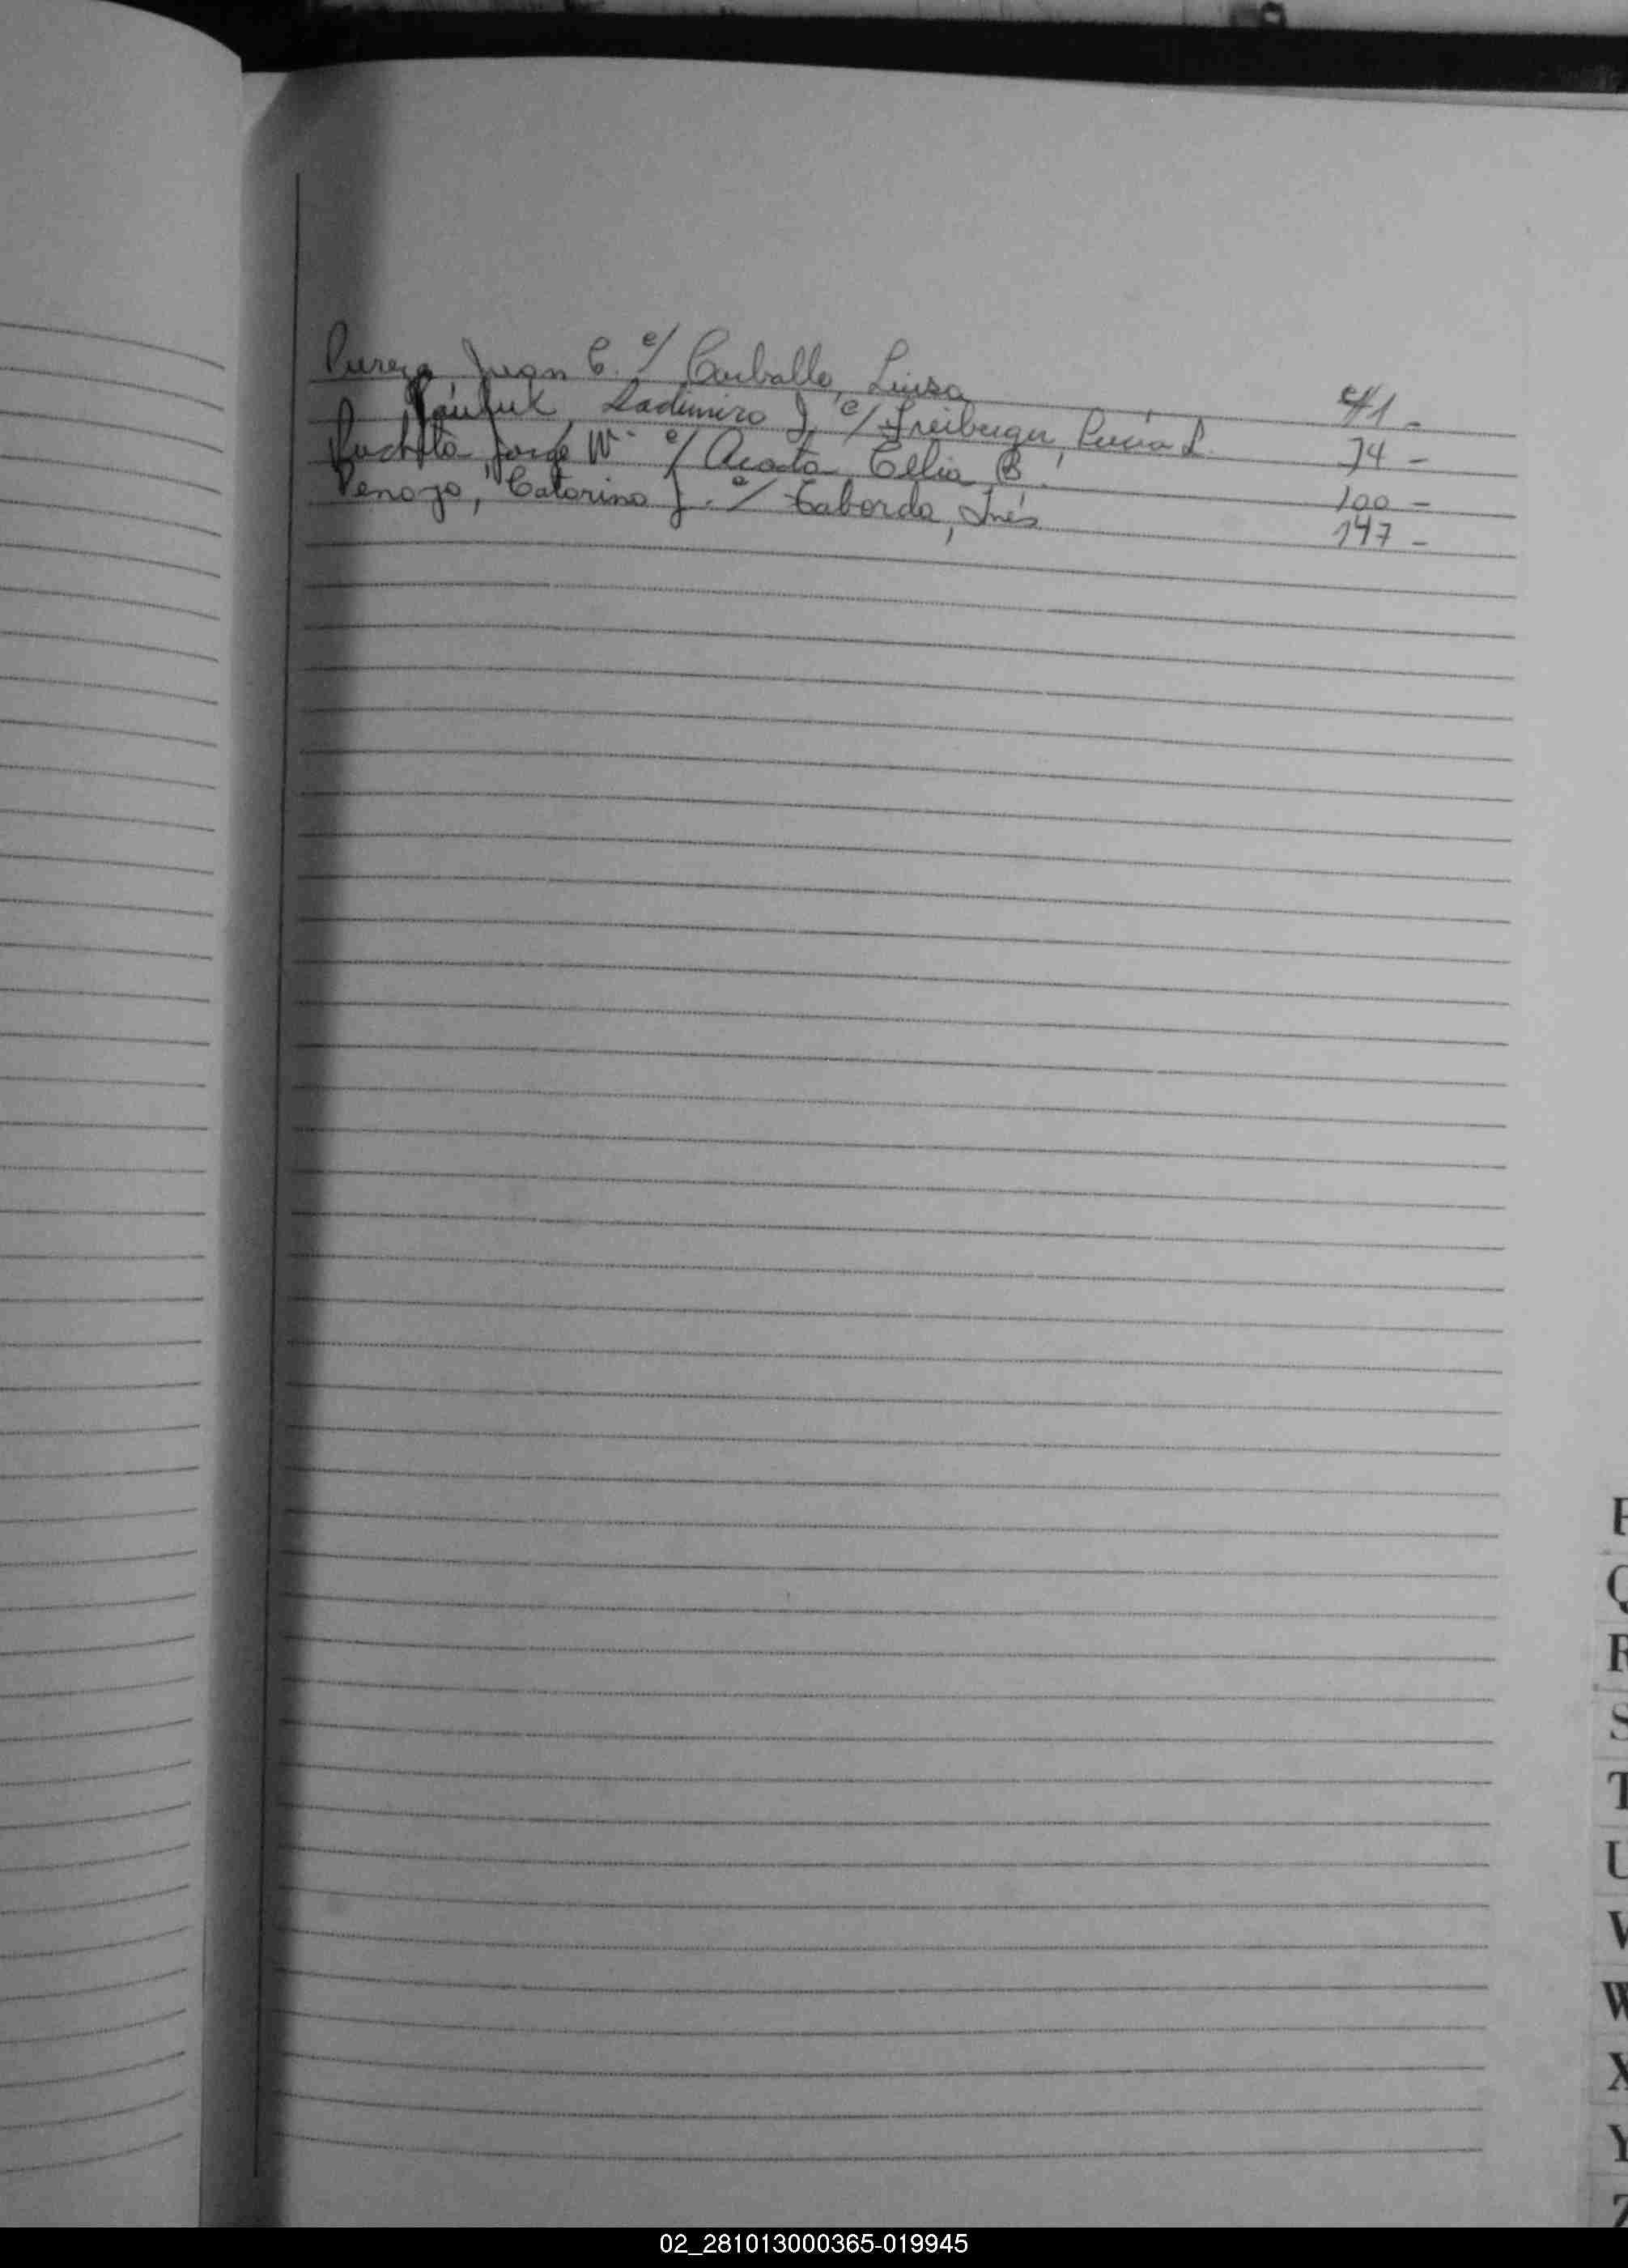 Pureza Juan C. c/ Carballo, Luisa 41 -
Ladimiro J. c/ Freiberger, Lucía L. 74 -
Jorge W. c/ Acosta Celia B. 100 -
Penayo, Catarino J. c/ Taborda, Inés 147 -
Q
R
S
T
U
V
W
X
Y
Z
02_281013000365-019945